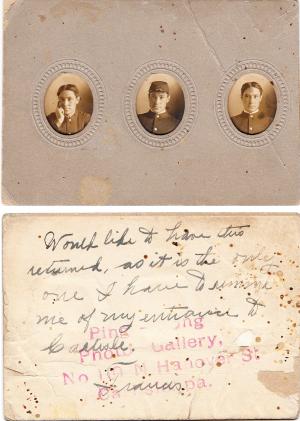 Would like to have this
returned, as it is the only
one I have to remind
me of my entrance to
Carlisle.
Francis
Photo Gallery,
No N. Hanover St.
Pa.